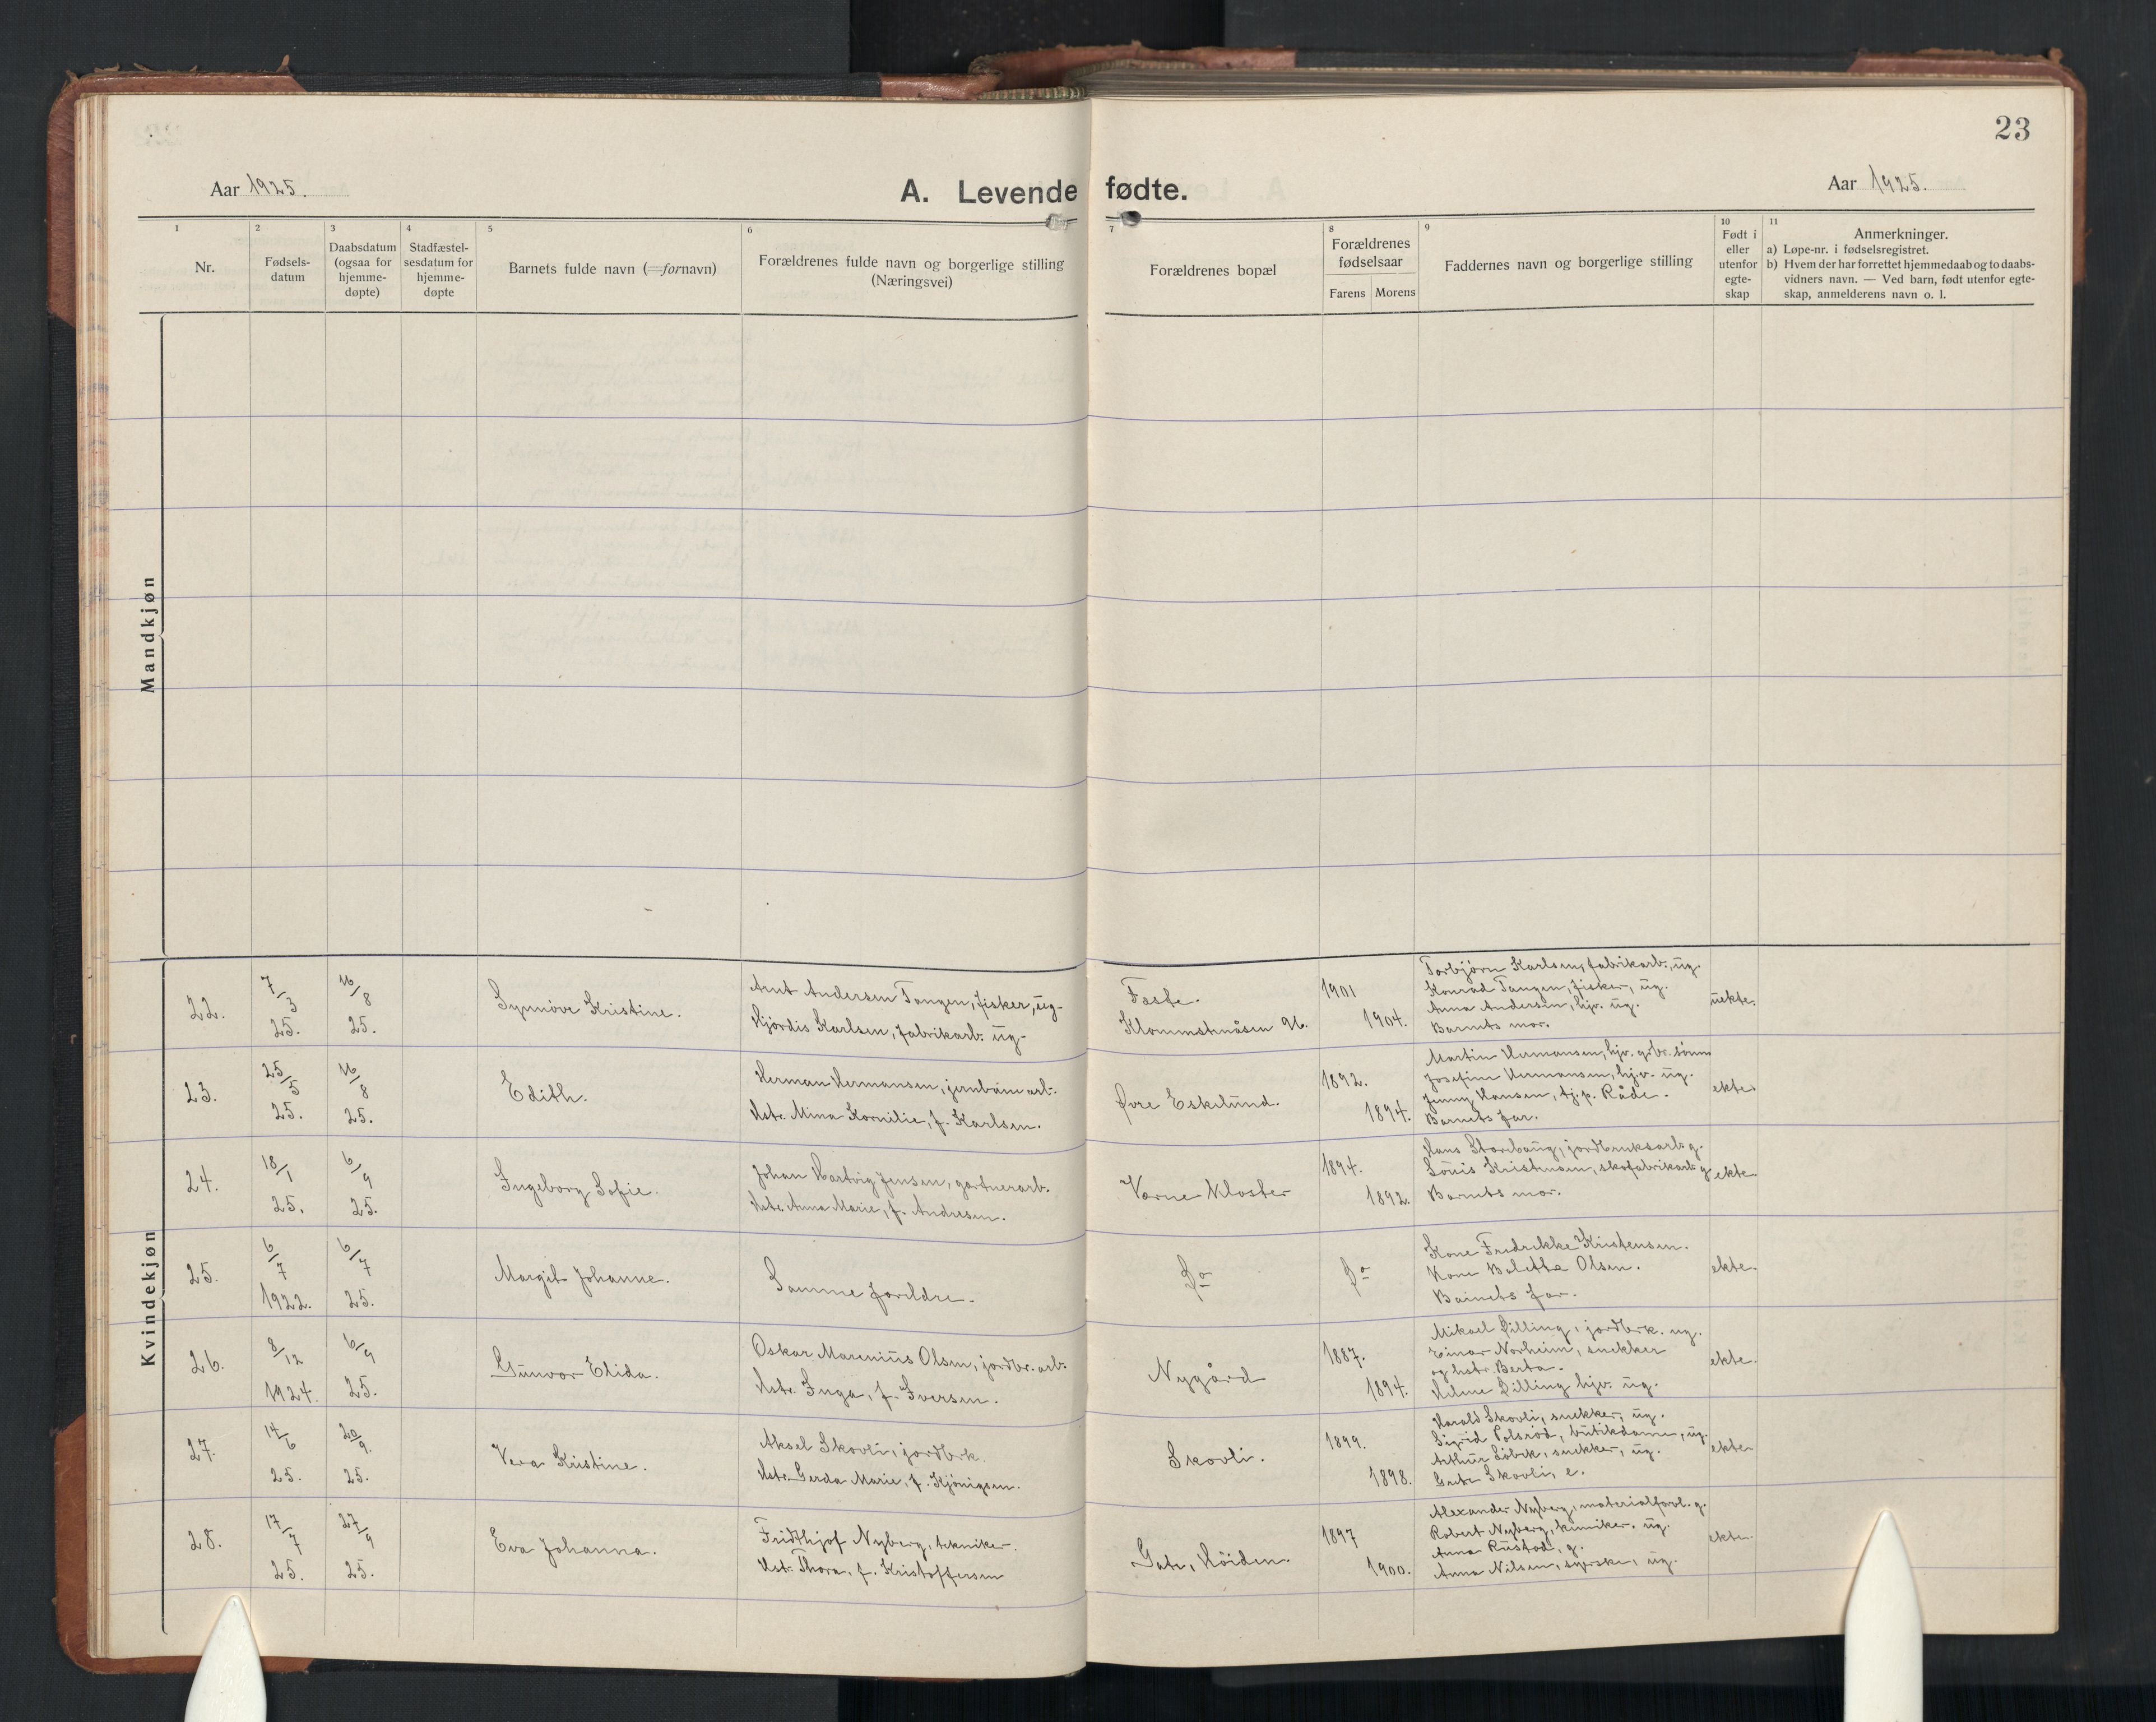 23
Aar 1925.
A. Levende fødte.
Aar 1925.
1
2
3
4
5
6
7
8
9
10
11
Nr.
Fødsels-
datum
Daabsdatum
(ogsaa for
hjemme-
døpte)
Stadfæstel-
sesdatum for
hjemme-
døpte
Barnets fulde navn (=fornavn)
Forældrenes fulde navn og borgerlige stilling
(Næringsvei)
Forældrenes bopæl
Forældrenes
fødselsaar
Farens Morens
Faddernes navn og borgerlige stilling
Født i
eller
utenfor
egte-
skap
Anmerkninger.
a) Løpe-nr. i fødselsregistret.
b) Hvem der har forrettet hjemmedaab og to daabs-
vidners navn. — Ved barn, født utenfor egte-
skap, anmelderens navn o. l.
Mandkjøn
Kvindekjøn
22.
7/3
25.
16/8
25.
Synnöve Kristine.
Arnt Andersen Tangen, fisker, ug.
Hjördis Karlsen, fabrikarb. ug.
Faste.
1901
1904.
Torbjörn Karlsen, fabrikarb., ug.
Konrad Tangen, fisker, ug.
Anna Andersen, hjv. ug.
Barnets mor.
uekte.
23.
25/5
25.
16/8
25.
Edith.
Herman Hermansen, jernbanearb.
Hstr. Mina Kornilie, f. Karlsen.
Øvre Eskelund.
1892.
1894.
Martin Hermansen, hjv. grbr. sönn
Josefine Hermansen, hjv. ug.
Jenny Hansen, tj. p. Råde.
Barnets far.
ekte.
24.
18/1
25.
6/9
25.
Ingeborg Sofie.
Johan Hartvig Jensen, gartnerarb.
Hstr. Anna Marie, f. Andresen.
Værne Kloster
1894.
1892.
Hans Storebaug, jordbruksarb. g.
Louis Kristensen, skofabrikarb. g.
Barnets mor.
ekte.
25.
6/7
1922.
6/7
25.
Margit Johanne.
Samme foreldre.
Do
Do
Kone Fredrikke Kristensen.
Kone Bolette Olsen.
Barnets far.
ekte.
26.
8/12
1924.
6/9
25.
Gunvor Elida.
Oskar Marenius Olsen, jordbr. arb.
Hstr. Inga, f. Iversen.
Nygård
1887.
1894.
Mikael Dilling, jordbrk. ug.
Einar Norheim, snekker
og hstr. Berta.
Helene Dilling hjv. ug.
ekte.
27.
14/6
25.
20/9.
25.
Vera Kristine.
Aksel Skovli, jordbrk.
Hstr. Gerda Marie, f. Kjönigsen.
Skovli.
1899.
1898.
Harald Skovli, snekker, ug.
Sigrid Volsröd, butikdame, ug.
Arthur Löbek, snekker, ug.
Skovli, e.
ekte
28.
17/7
25.
27/9
25.
Eva Johanna.
Fridthjof Nyberg, tekniker.
Hstr. Thora, f. Kristoffersen
Gate, Höiden.
1897
1900.
Alexander Nyberg, materialforv. g.
Robert Nyberg, kemiker. ug.
Anna Rustad, g.
Anna Nilsen, syerske, ug.
ekte.